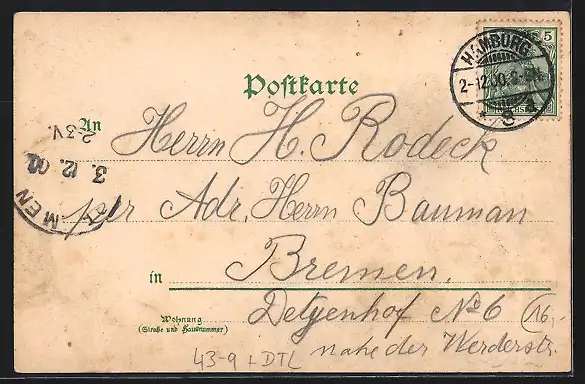 HAMBURG
5
2-12.00.
* 8
Postkarte
An Herrn H. Rodeck
2-3V.
3.12.00
MEN
per Adr. Herrn Bauman
in Bremen.
Wohnung
(Straße und Hausnummer)
Detgenhof No 6 (16,-
nahe der Werderstr.
43-9 + DTL